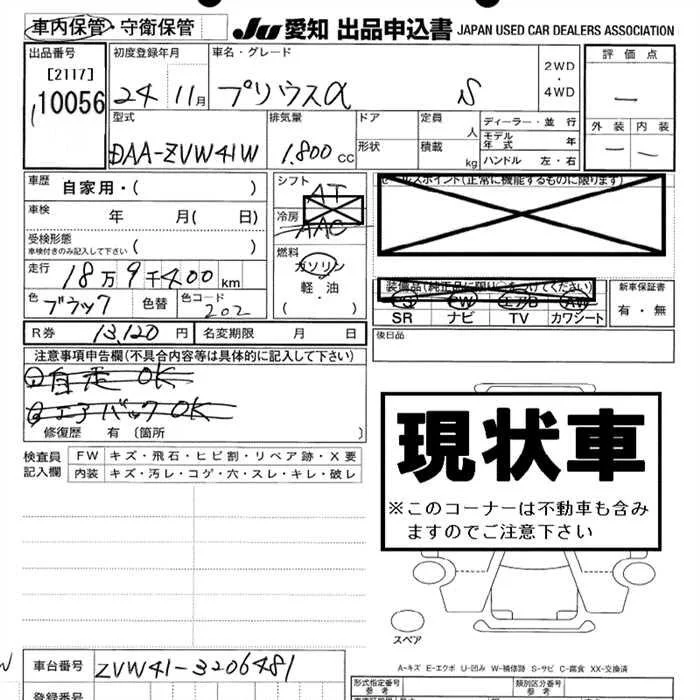 車内保管・守衛保管
JU 愛知 出品申込書 JAPAN USED CAR DEALERS ASSOCIATION
出品番号
[2117]
10056
初度登録年月
24 11月
車名・グレード
プリウスα S
2WD
・
4WD
評価点
—
外装 内装
— —
型式
DAA-ZVW41W
排気量
1.800 cc
ドア
形状
定員 人
積載 kg
ディーラー・並行
モデル年式 年
ハンドル 左・右
車歴 自家用・( )
車検 年 月( 日)
受検形態
車検付きのみ記入して下さい ( )
走行 18万9千400 km
色 ブラック 色替 色コード 202
シフト AT
冷房 AAC
燃料
ガソリン
軽・油
( )
セールスポイント(正常に機能するものに限ります)
装備品(純正品に限り○をつけてください)
PS PW エアB AW
SR ナビ TV カワシート
新車保証書
有・無
R券 13,120 円 名変期限 月 日
後日品
注意事項申告欄(不具合内容等は具体的に記入して下さい)
①自走OK
②エアバックOK
修復歴 有 〔箇所 〕
検査員
記入欄
FW キズ・飛石・ヒビ割・リペア跡・X要
内装 キズ・汚レ・コゲ・穴・スレ・キレ・破レ
現状車
※このコーナーは不動車も含み
ますのでご注意下さい
スペア
A-キズ E-エクボ U-凹み W-補修跡 S-サビ C-腐食 XX-交換済
車台番号 ZVW41-3206481
登録番号
形式指定番号
参考
類別区分番号
参考